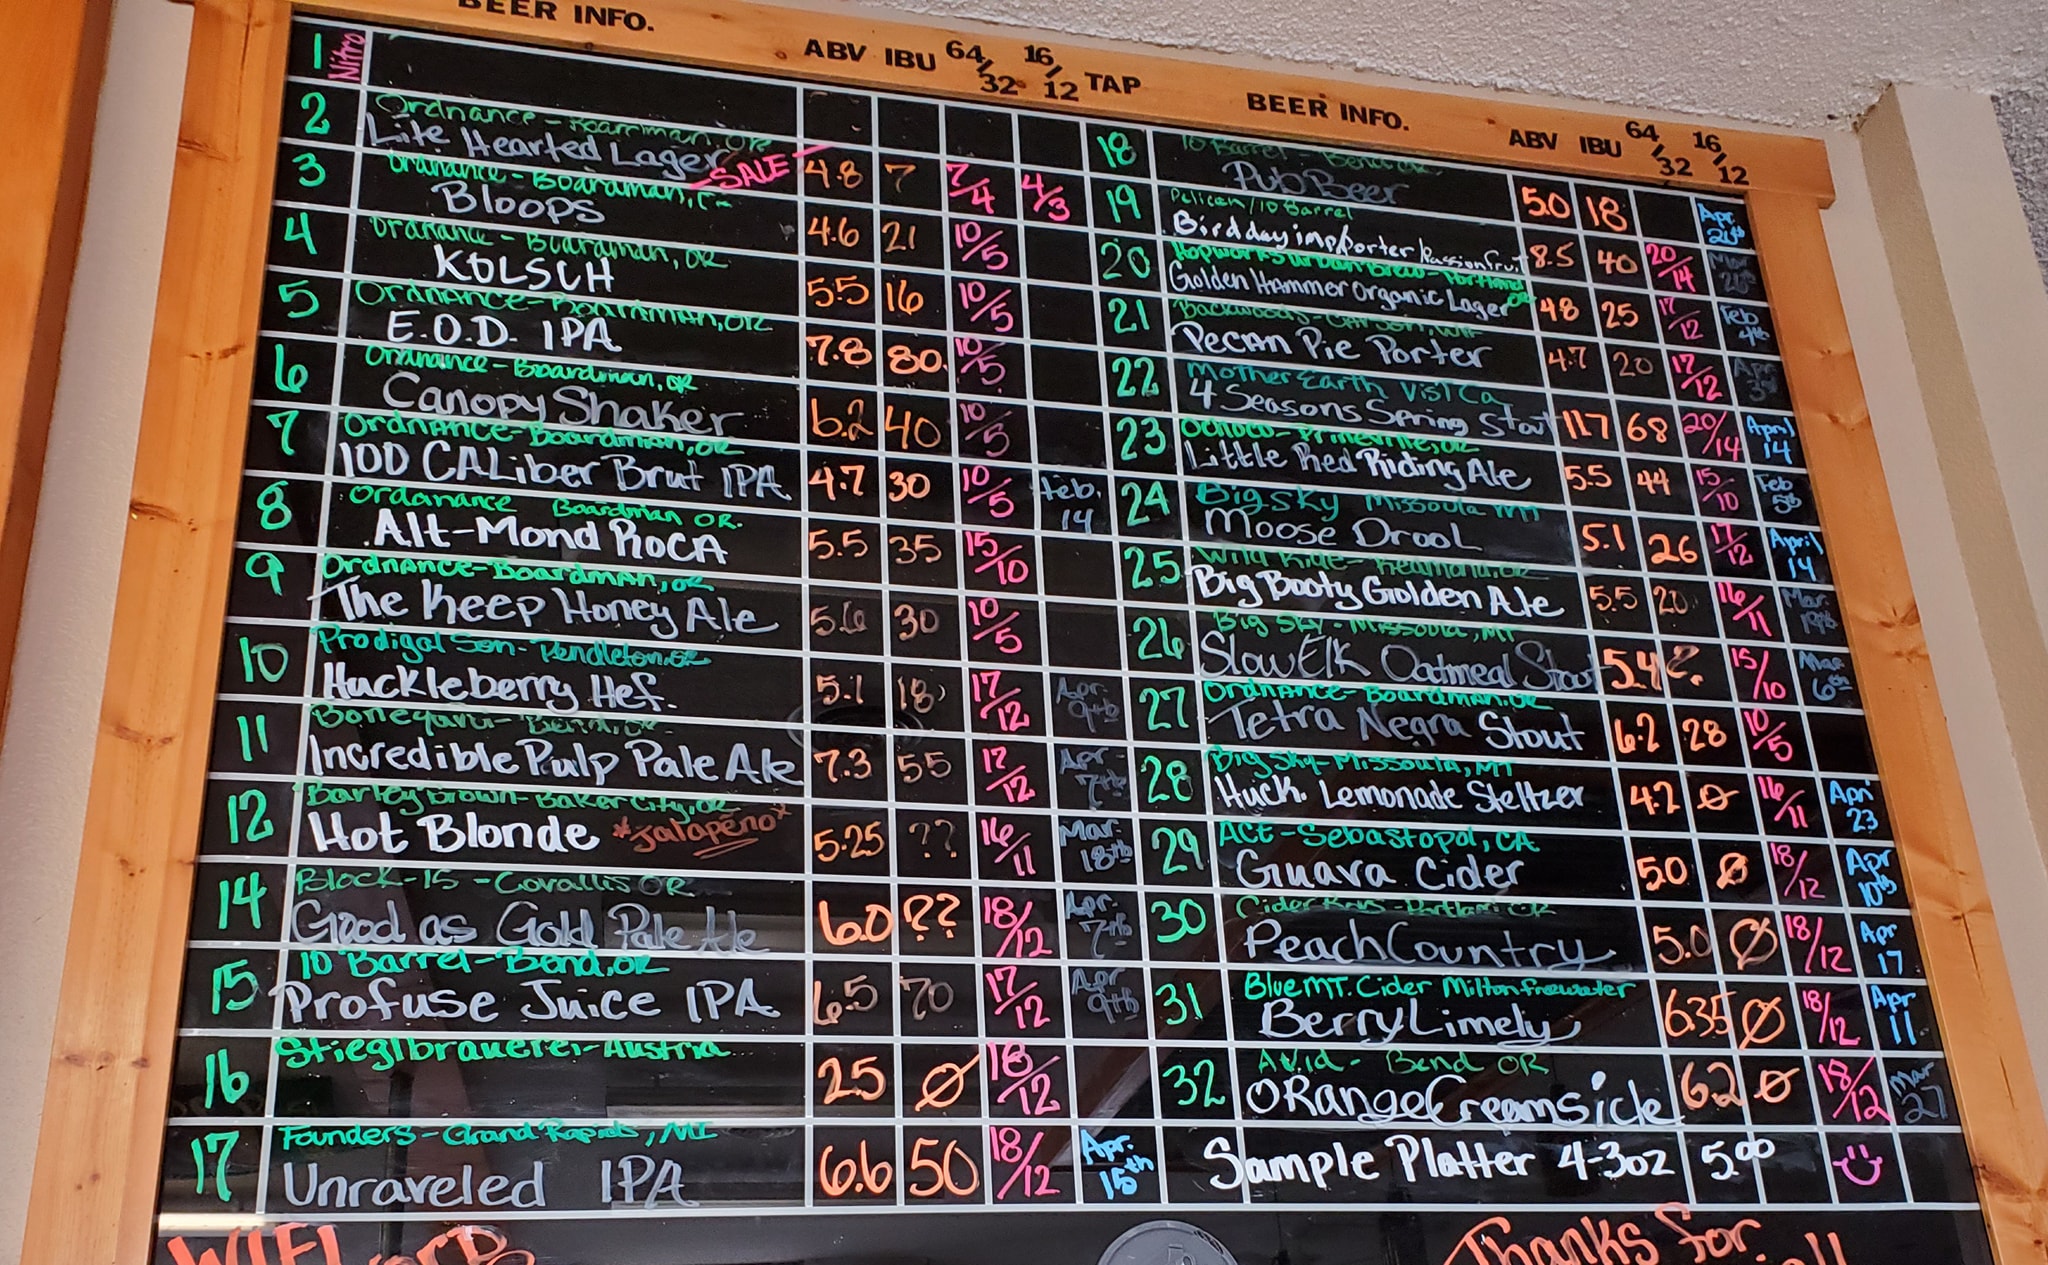 BEER INFO. ABV IBU 64/32 16/12 TAP
1 Nitro
2 Ordnance - Boardman, OR
Lite Hearted Lager SALE 4.8 7 7/4 4/3
3 Ordnance - Boardman,
Bloops 4.6 21 10/5
4 Ordnance - Boardman, OR
KOLSCH 5.5 16 10/5
5 Ordnance - Boardman, OR
E.O.D. IPA 7.8 80 10/5
6 Ordnance - Boardman, OR
Canopy Shaker 6.2 40 10/5
7 Ordnance - Boardman, OR
100 CALiber Brut IPA 4.7 30 10/5 Feb. 14
8 Ordanance Boardman OR.
Alt-Mond ROCA 5.5 35 15/10
9 Ordnance - Boardman, OR
The Keep Honey Ale 5.6 30 10/5
10 Prodigal Son - Pendleton, OR
Huckleberry Hef. 5.1 18 17/12 Apr. 9th
11 Boneyard - Bend, OR
Incredible Pulp Pale Ale 7.3 55 17/12 Apr 7th
12 Barley Brown - Baker City, OR
Hot Blonde *jalapeño* 5.25 ?? 16/11 Mar. 18th
14 Block-15 - Corvallis OR
Good as Gold Pale Ale 6.0 ?? 18/12 Apr. 7th
15 10 Barrel - Bend, OR
Profuse Juice IPA 6.5 70 17/12 Apr 9th
16 Stieglbrauerei - Austria
2.5 Ø 18/12
17 Founders - Grand Rapids, MI
Unraveled IPA 6.6 50 18/12 Apr. 15th
WIFI
BEER INFO. ABV IBU 64/32 16/12
18 10 Barrel - Bend OR
Pub Beer 5.0 18 Apr.
19 Pelican/10 Barrel
Birdday imp/porter/passionfruit 8.5 40 20/14 Mar
20 Hopworks Urban Brew - Portland OR
Golden Hammer Organic Lager 4.8 25 17/12 Feb 4th
21 Backwoods - Carson, WA
Pecan Pie Porter 4.7 20 17/12 Apr 3rd
22 Mother Earth Vist Ca
4 Seasons Spring Stout 11.7 68 20/14 April 14
23 Ochoco - Prineville, OR
Little Red Riding Ale 5.5 44 15/10 Feb 5th
24 Big Sky Missoula MT
Moose Drool 5.1 26 17/12 April 14
25 Wild Ride - Redmond, OR
Big Booty Golden Ale 5.5 20 16/11 Mar. 19th
26 Big Sky - Missoula, MT
Slow Elk Oatmeal Stout 5.4 ? 15/10 Mar. 6th
27 Ordnance - Boardman, OR
Tetra Negra Stout 6.2 28 10/5
28 Big Sky - Missoula, MT
Huck. Lemonade Steltzer 4.2 Ø 16/11 Apr 23
29 ACE - Sebastopol, CA
Guava Cider 5.0 Ø 18/12 Apr 10th
30 Cider Riot - Portland OR
Peach Country 5.0 Ø 18/12 Apr 17
31 Blue MT. Cider Milton freewater
Berry Limely 6.35 Ø 18/12 Apr 11
32 Avid - Bend OR
ORange Creamsicle 6.2 Ø 18/12 Mar 27
Sample Platter 4-3oz 5.00
Thanks for